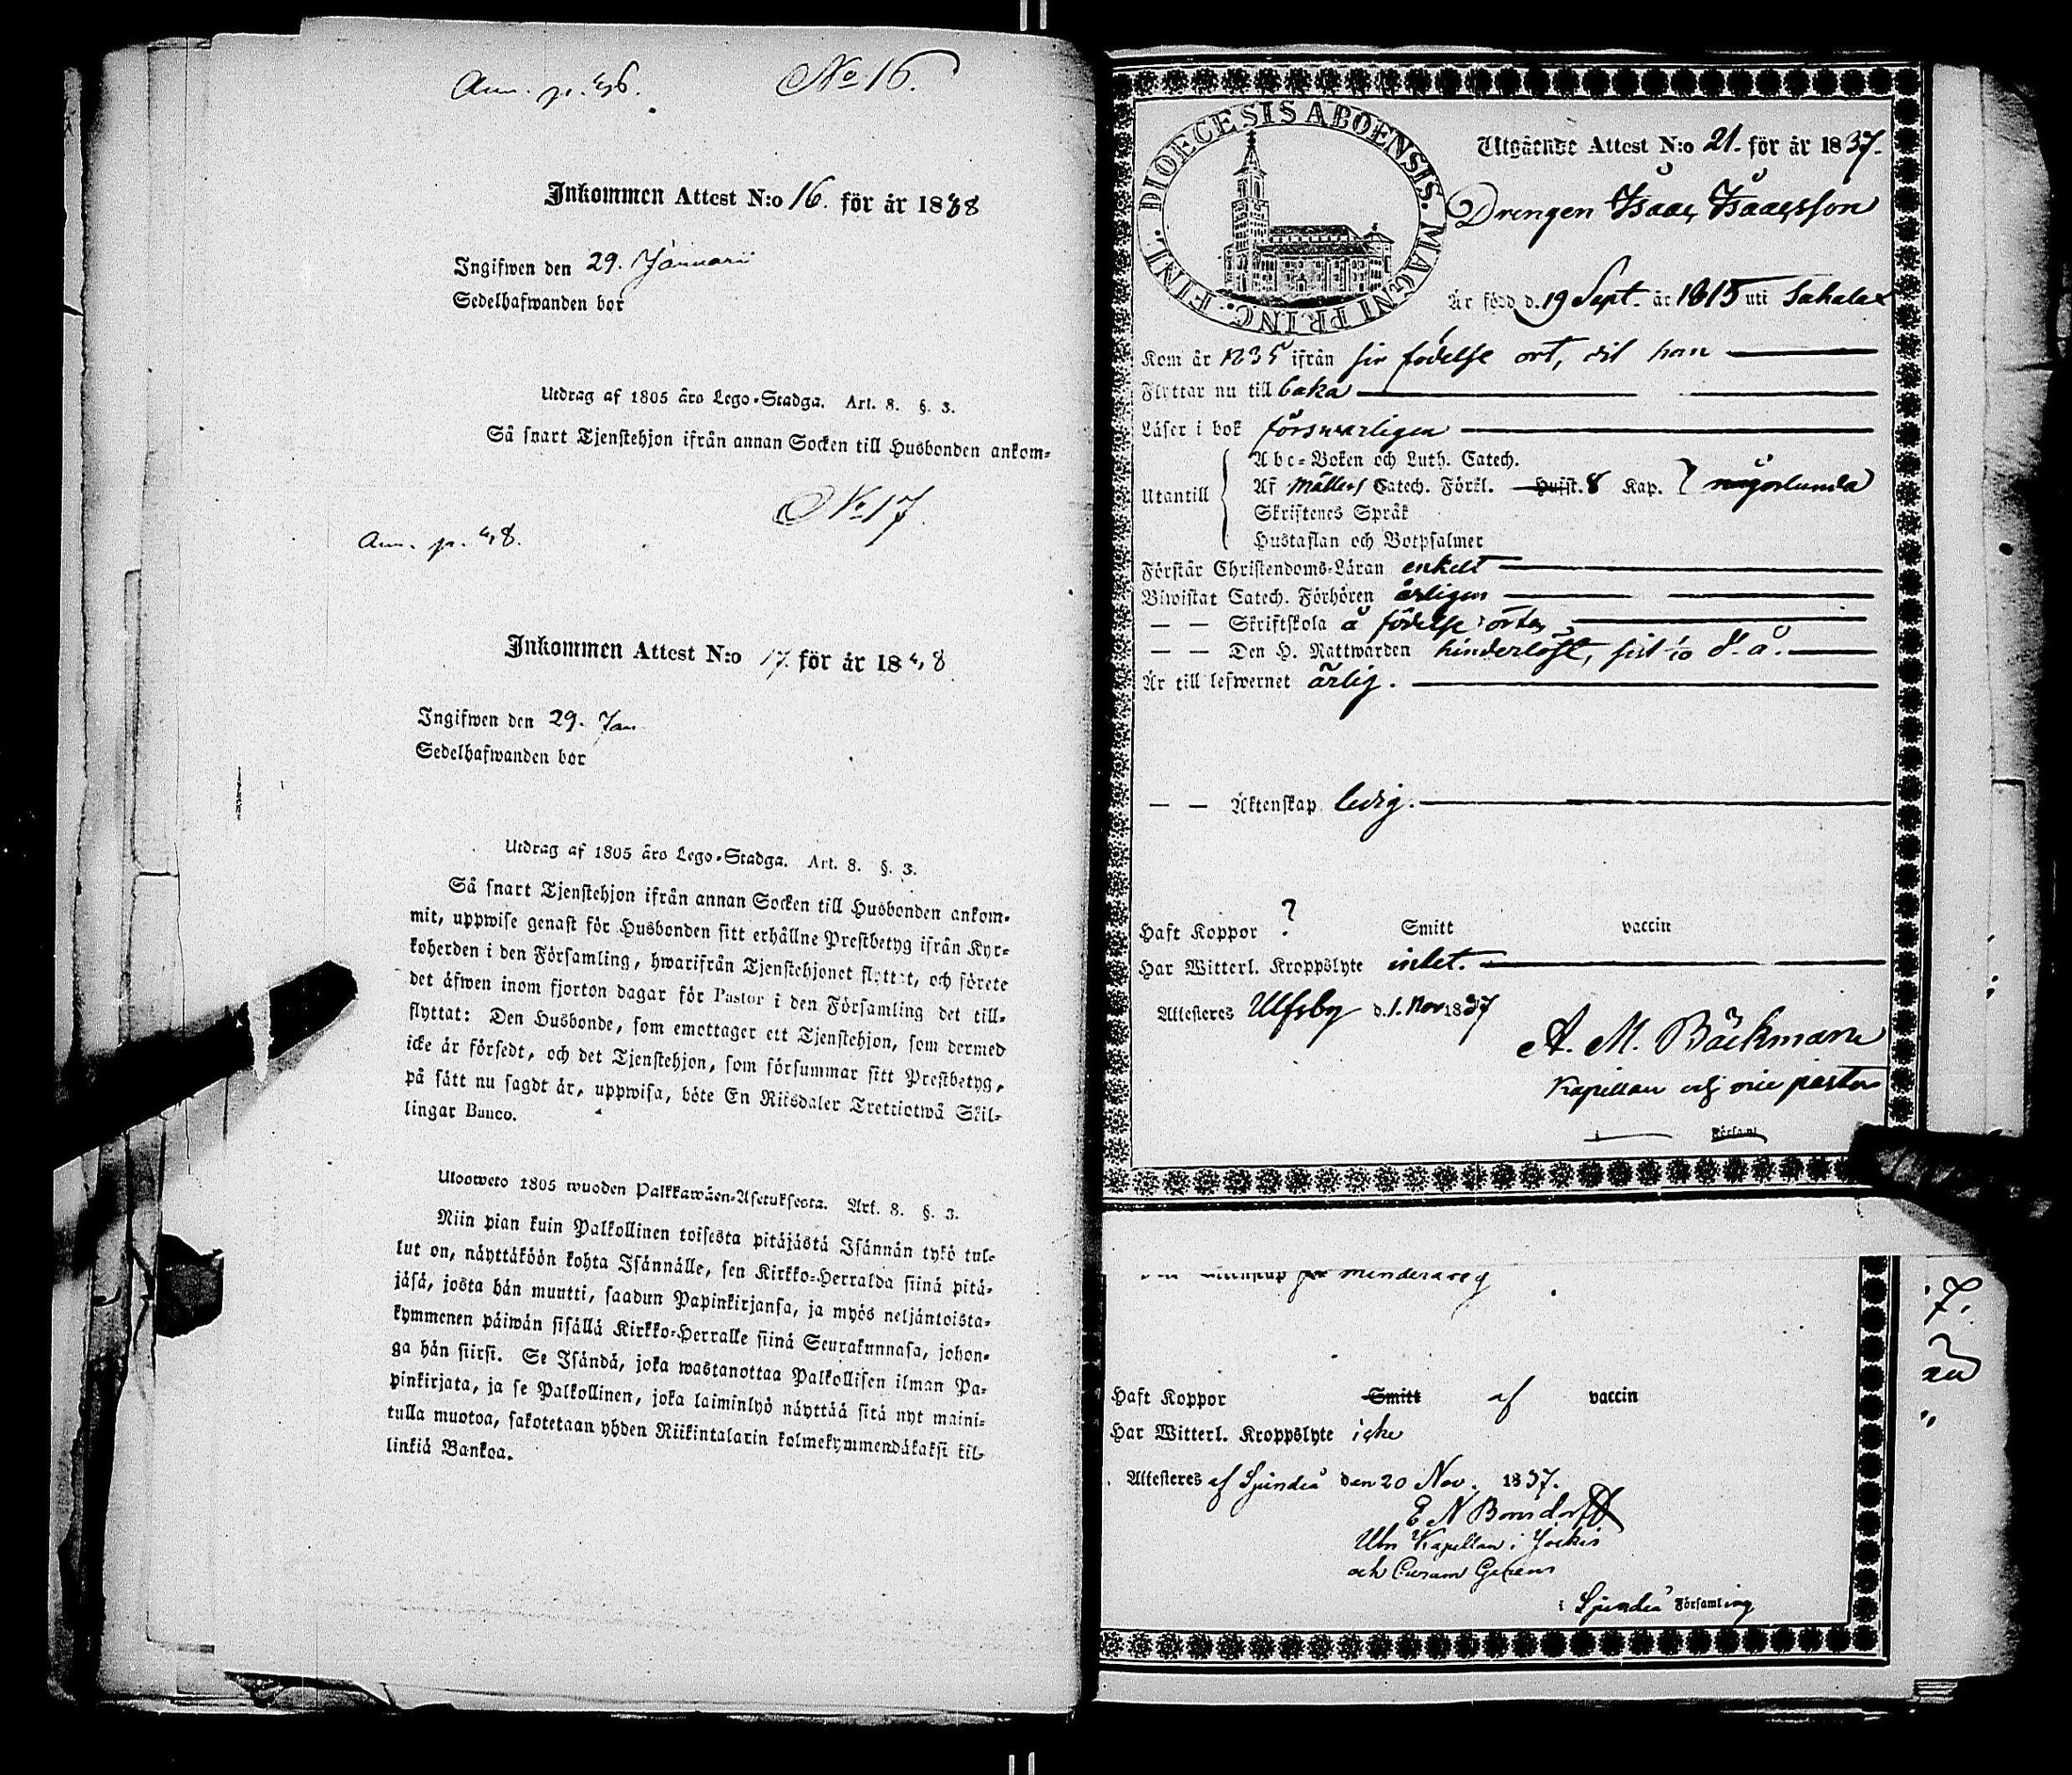 Ann. p. 46.
No 16.
Inkommen Attest N:o 16. för år 1838
Ingifwen den 29. Januarii
Sedelhafwanden bor
Utdrag af 1805 års Lego-Stadga. Art. 8. §. 3.
Så snart Tjenstehjon ifrån annan Socken till Husbonden ankom-
No 17.
Ann. p. 48.
Inkommen Attest N:o 17. för år 18
Ingifwen den 29. Jan
Sedelhafwanden bor
Utdrag af 1805 års Lego-Stadga. Art. 8. §. 3.
Så snart Tjenstehjon ifrån annan Socken till Husbonden ankom-
mit, uppwise genast för Husbonden sitt erhållne Prestbetyg ifrån Kyr-
koherden i den Församling, hwarifrån Tjenstehjonet flyttat, och förete
det äfwen inom fjorton dagar för Pastor i den Församling det till-
flyttat: Den Husbonde, som emottager ett Tjenstehjon, som dermed
icke är försedt, och det Tjenstehjon, som försummar sitt Prestbetyg,
på sätt nu sagdt är, uppwisa, böte En Riksdaler Trettiotwå Skil-
lingar Banco.
Ulosweto 1805 wuoden Palkkawäen-Asetuksesta. Art. 8. §. 3.
Niin pian kuin Palkollinen toisesta pitäjästä Isännän tykö tul-
lut on, näyttäköön kohta Isännälle, sen Kirkko-Herralda siinä pitä-
jäsä, josta hän muutti, saadun Papinkirjansa, ja myös neljäntoista-
kymmenen päiwän sisällä Kirkko-Herralle siinä Seurakunnasa, johon-
ga hän siirsi. Se Isändä, joka wastanottaa Palkollisen ilman Pa-
pinkirjata, ja se Palkollinen, joka laiminlyö näyttää sitä nyt maini-
tulla muotoa, sakotetaan yhden Riikintalarin kolmekymmendäkaksi kil-
linkiä Bankoa.
FINL. DIOECESIS ABOENSIS. MAGNI PRINC.
Utgående Attest N:o 21. för år 1837.
Drengen Isaac Isaacsson
Är född d. 19 Sept. år 1815 uti Sahalax
Kom år 1835 ifrån sin födelse ort, dit han
Flyttar nu till baka
Läser i bok försvarligen
Abc-Boken och Luth. Catech.
Utantill Af Möllers Catech. Förkl. Hufst. 8 Kap. någorlunda
Skriftenes Språk
Hustaflan och Botpsalmer
Förstår Christendoms-Läran enkelt
Biwistat Catech. Förhören årligen
— — Skriftskola å födelse orten
— — Den H. Nattwarden hinderlöst, sist 1/10 d. å.
Är till lefwernet ärlig.
— — Äktenskap ledig.
Haft Koppor ? Smitt vaccin
Har Witterl. Kroppslyte intet.
Attesteres Ulfsby d. 1. Nov 1837
A. M. Bäckman
Kapellan och vice pastor
i Församl
Äktenskap för minderårig
Haft Koppor Smitt af vaccin
Har Witterl. Kroppslyte icke
Attesteres af Sjundeå den 20 Nov. 1837.
E N Bonsdorff
Utn Kapellan i Jockis
och Curam Gerens
i Sjundeå Församling
7.